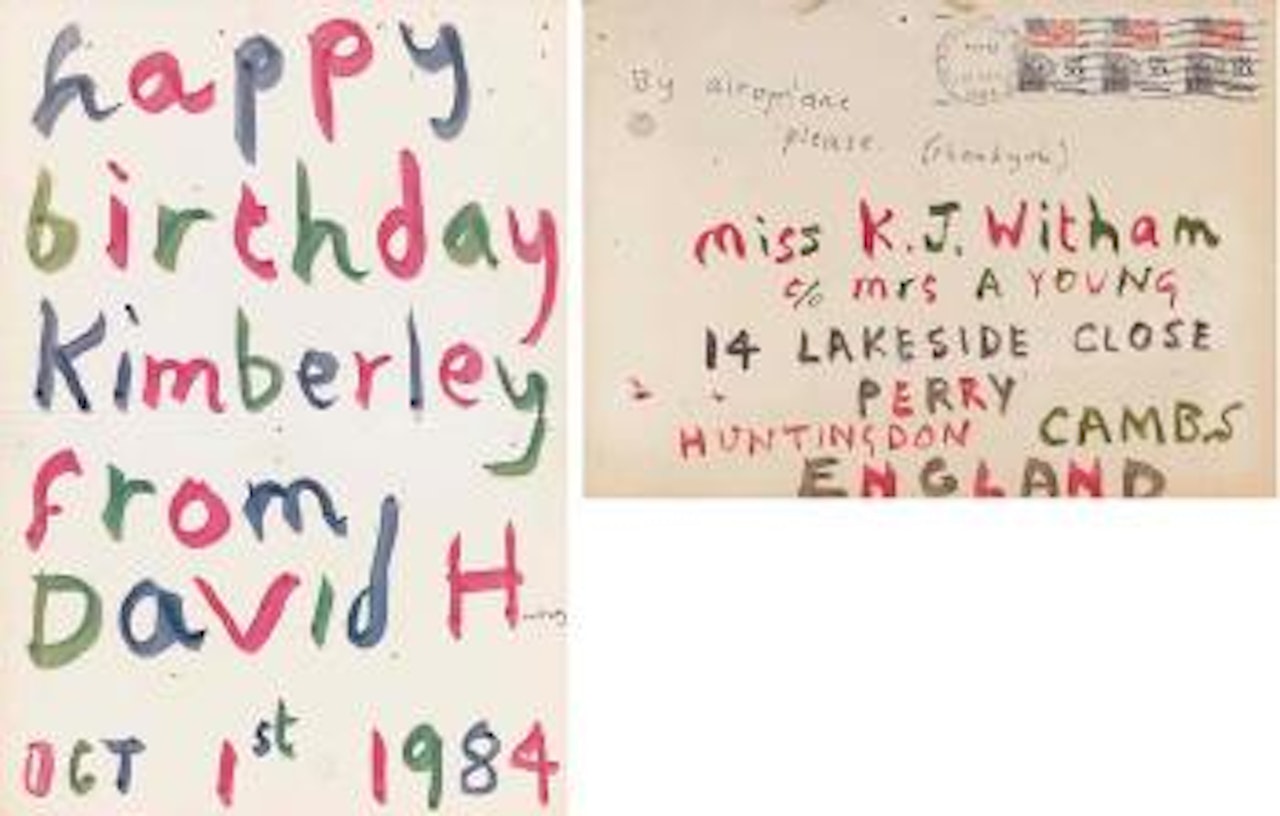 happy
birthday
Kimberley
from
David H
OCT 1st 1984
By airoplane
please. (thankyou)
miss K.J. Witham
c/o mrs A YOUNG
14 LAKESIDE CLOSE
PERRY
HUNTINGDON CAMBS
ENGLAND